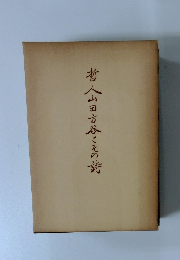 哲人山田方谷とその詩